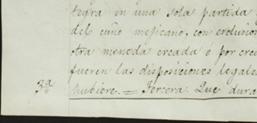 tegra en una sola partida
del cuño mejicano, con exclusion
otra moneda creada ó por crea
fueren las disposiciones legale
3ª hubiere. = Tercera. Que dura